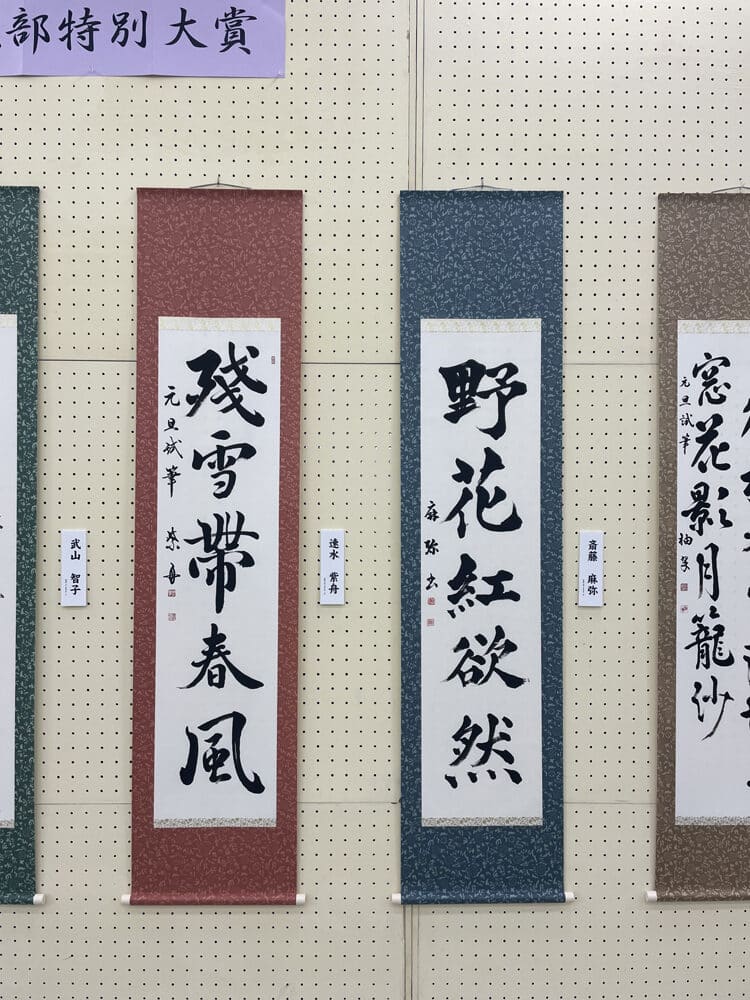 部特別大賞
武山 智子
残雪帶春風
元旦試筆 紫舟
速水 紫舟
野花紅欲然
麻弥書
斎藤 麻弥
窓花影月籠沙
元旦試筆